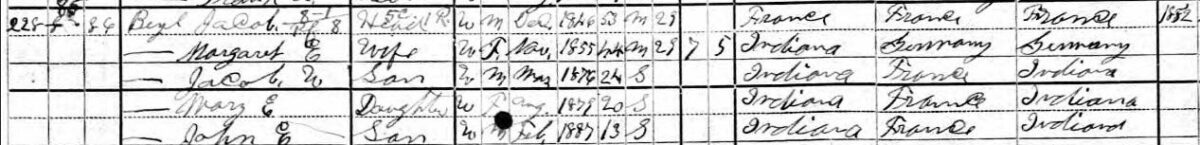 84 Beyl Jacob Head W M Oct 1846 53 M 29 France France France
— Margaret E Wife W F Nov 1855 44 M 29 7 5 Indiana Germany Germany
— Jacob W Son W M May 1876 24 S Indiana France Indiana
— Mary E Daughter W F Aug 1879 20 S Indiana France Indiana
— John E Son W M Feb 1887 13 S Indiana France Indiana